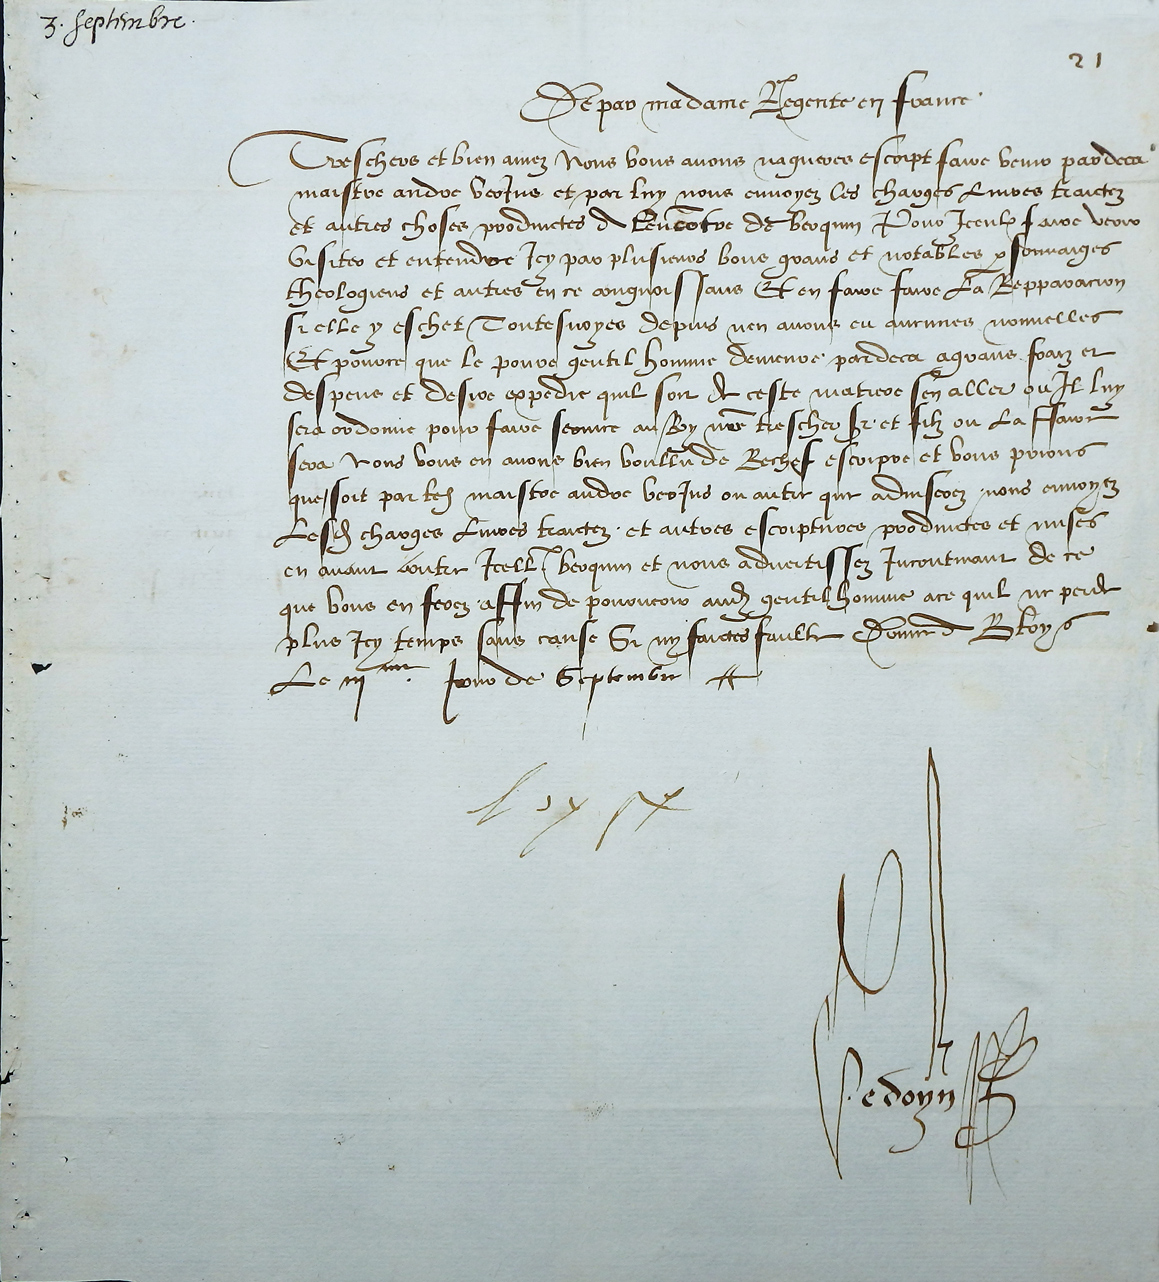 3. septembre.
21
De par madame Regente en france
Tres chers et bien amez Nous vous avons nagueres escript faire venir par deca
maistre andre verjus et par luy nous envoyez les charges Livres traictez
et autres choses produictes a Lencotre de berquin Pour Iceulx faire veoir
visiter et entendre Icy par plusieurs bons grans et notables psonnaiges
theologiens et autres en ce congnoissans Et en faire faire La Repparacion
si elle y eschet Toutesvoyes depuis nen avons eu aucunes nouvelles
Et pource que le povre gentil homme demeure par deca a grans fraiz et
despens et desire expedie quil soit de ceste matiere sen aller ou Il luy
sera ordonne pour faire service au Roy nre trescher sr et filz ou La ffaire
sera Nous vous en avons bien voullu de Rechef escripre et vous prions
que soit par led maistre andre verjus ou autre que adviserez nous envoyez
Lesd charges Livres traictez et autres escriptures produictes et mises
en avant contre Icell berquin et nous advertissez Incontinant de ce
que vous en ferez affin de pourveoir aud gentilhomme a ce quil ne perde
plus Icy temps sans cause Si ny faictes faulte Donne a Bloys
Le iii me Jour de Septembre
Loyse
Hedoyn